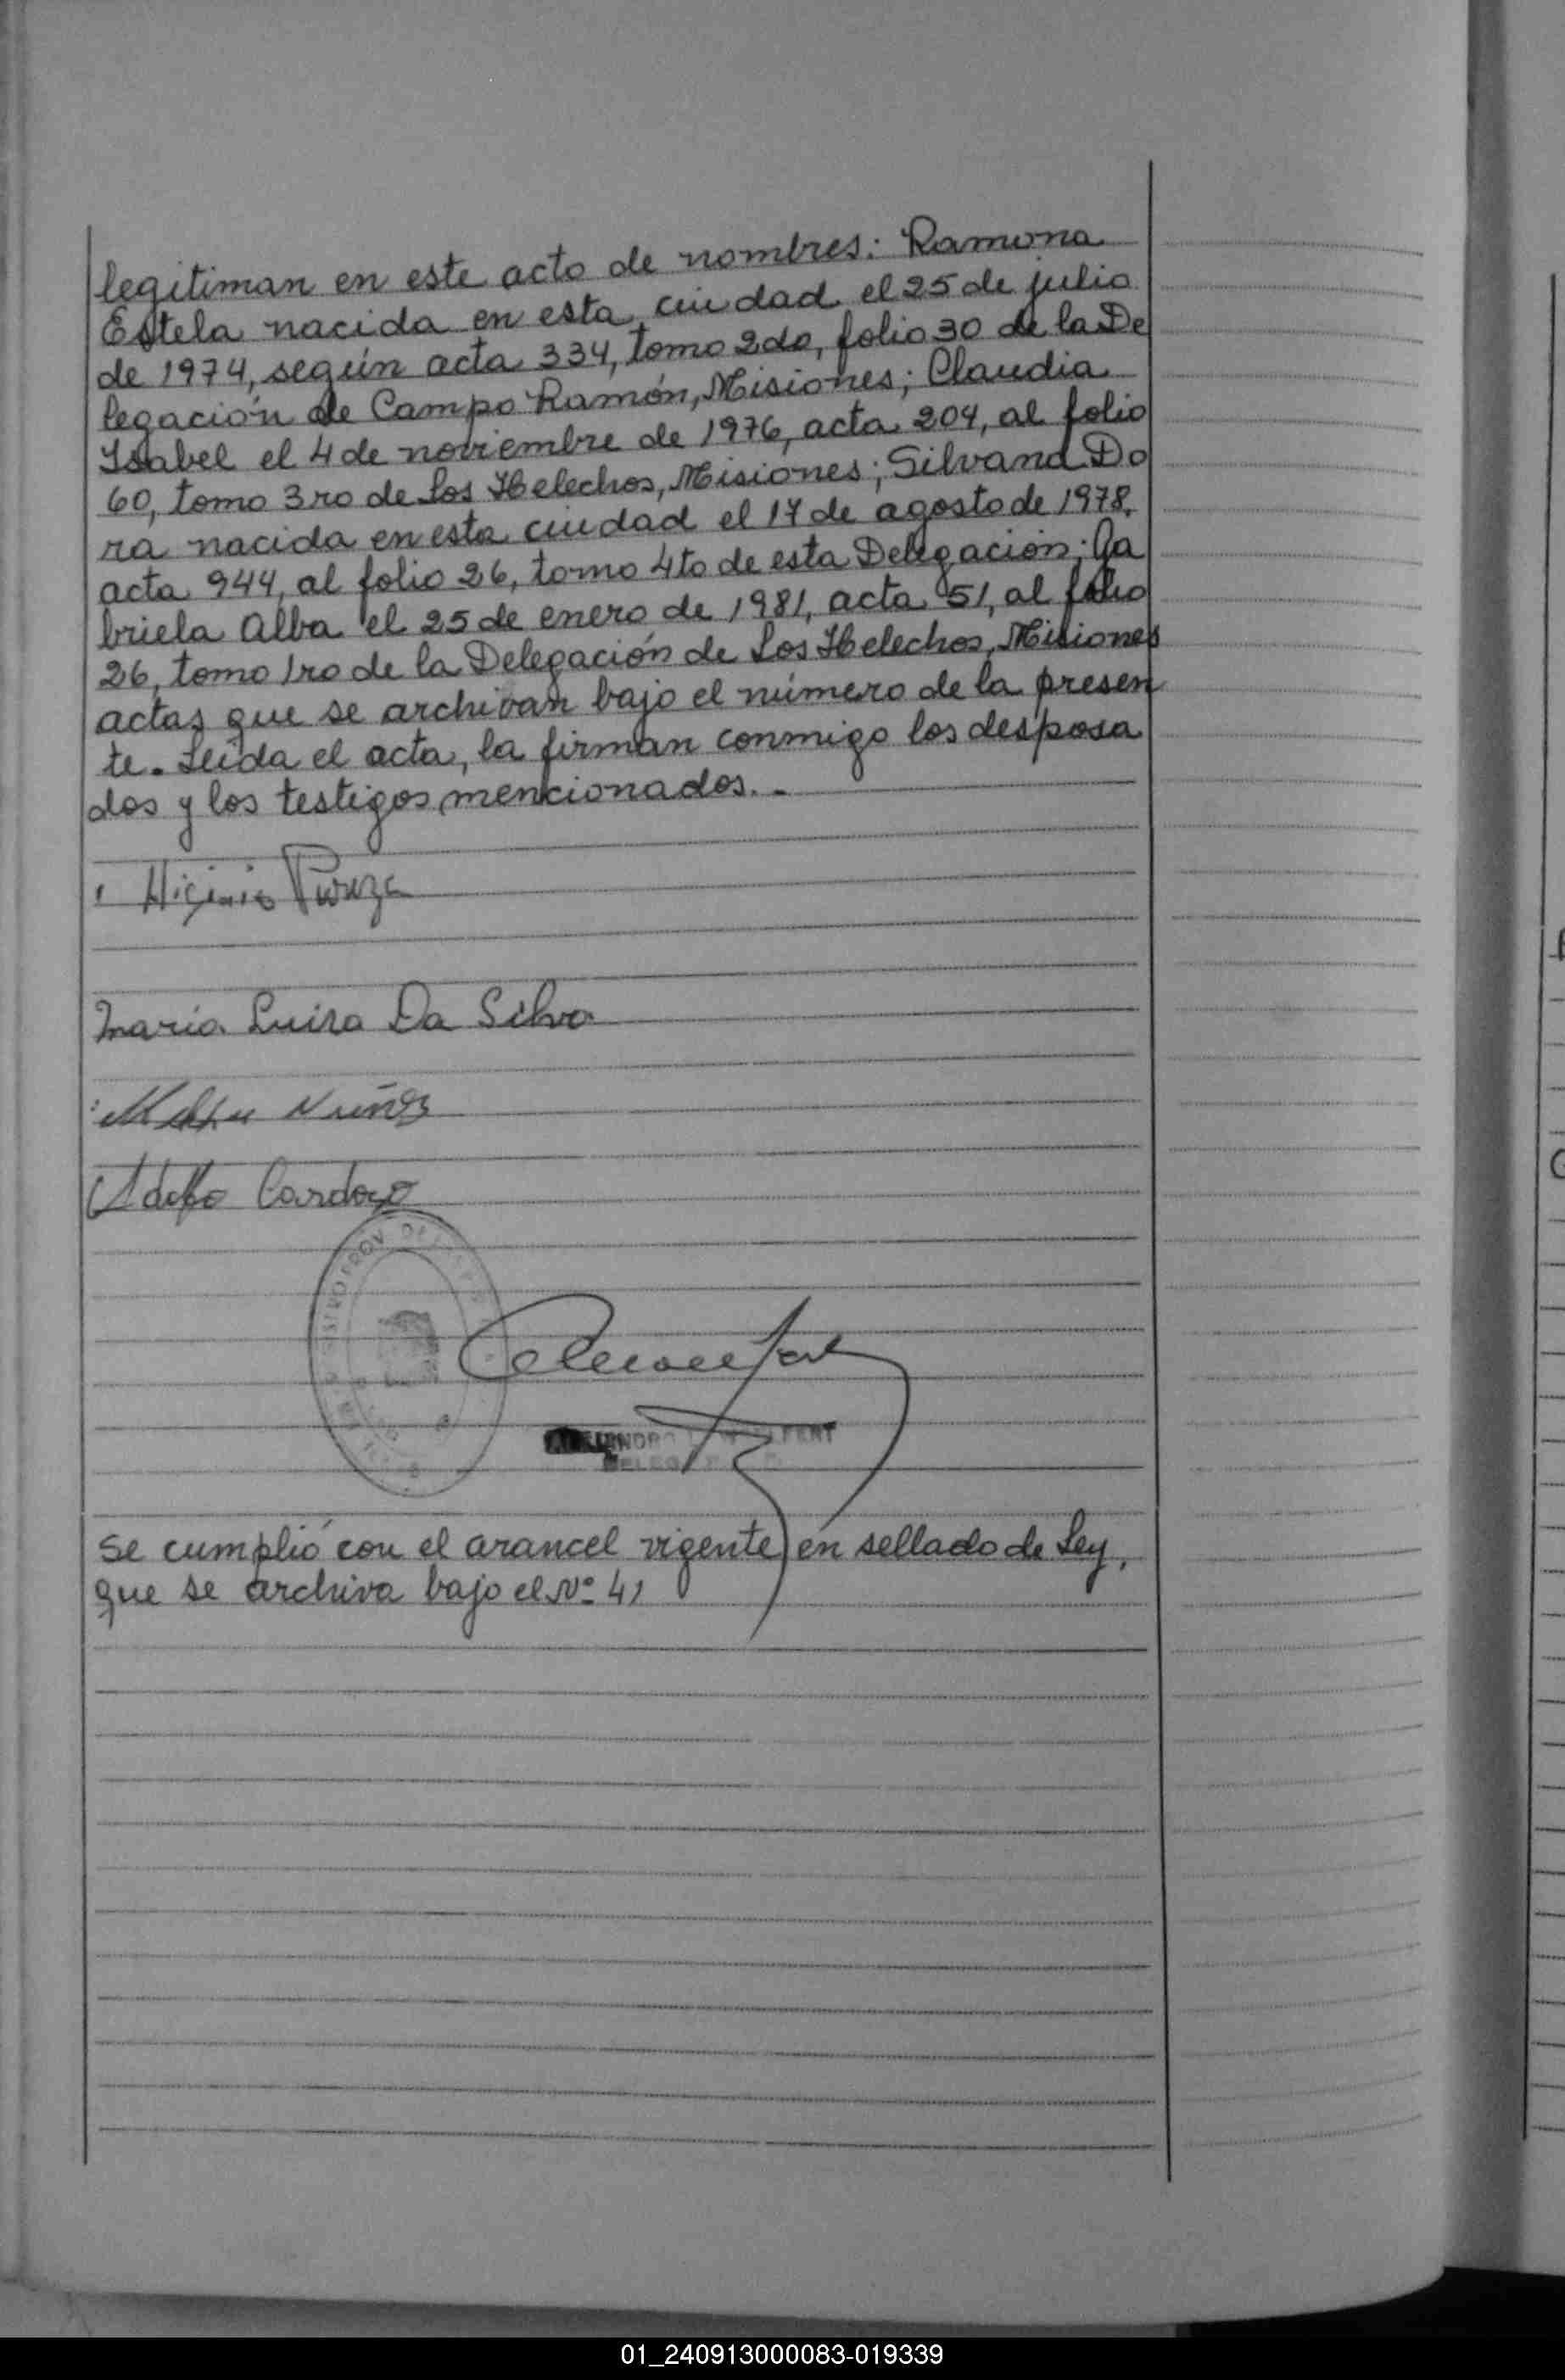 legitiman en este acto de nombres: Ramona
Estela nacida en esta ciudad el 25 de julio
de 1974, según acta 334, tomo 2do, folio 30 de la De
legación de Campo Ramón, Misiones; Claudia
Isabel el 4 de noviembre de 1976, acta 204, al folio
60, tomo 3ro de Los Helechos, Misiones; Silvana Do
ra nacida en esta ciudad el 17 de agosto de 1978,
acta 944, al folio 26, tomo 4to de esta Delegación; Ga
briela Alba el 25 de enero de 1981, acta 51, al folio
26, tomo 1ro de la Delegación de Los Helechos, Misiones
actas que se archivan bajo el número de la presen
te. Leída el acta, la firman conmigo los desposa
dos y los testigos mencionados. -
Higinio
Maria Luisa Da Silva
Nuñez
Adolfo Cardozo
se cumplió con el arancel vigente en sellado de Ley,
que se archiva bajo el Nº 41
01_240913000083-019339